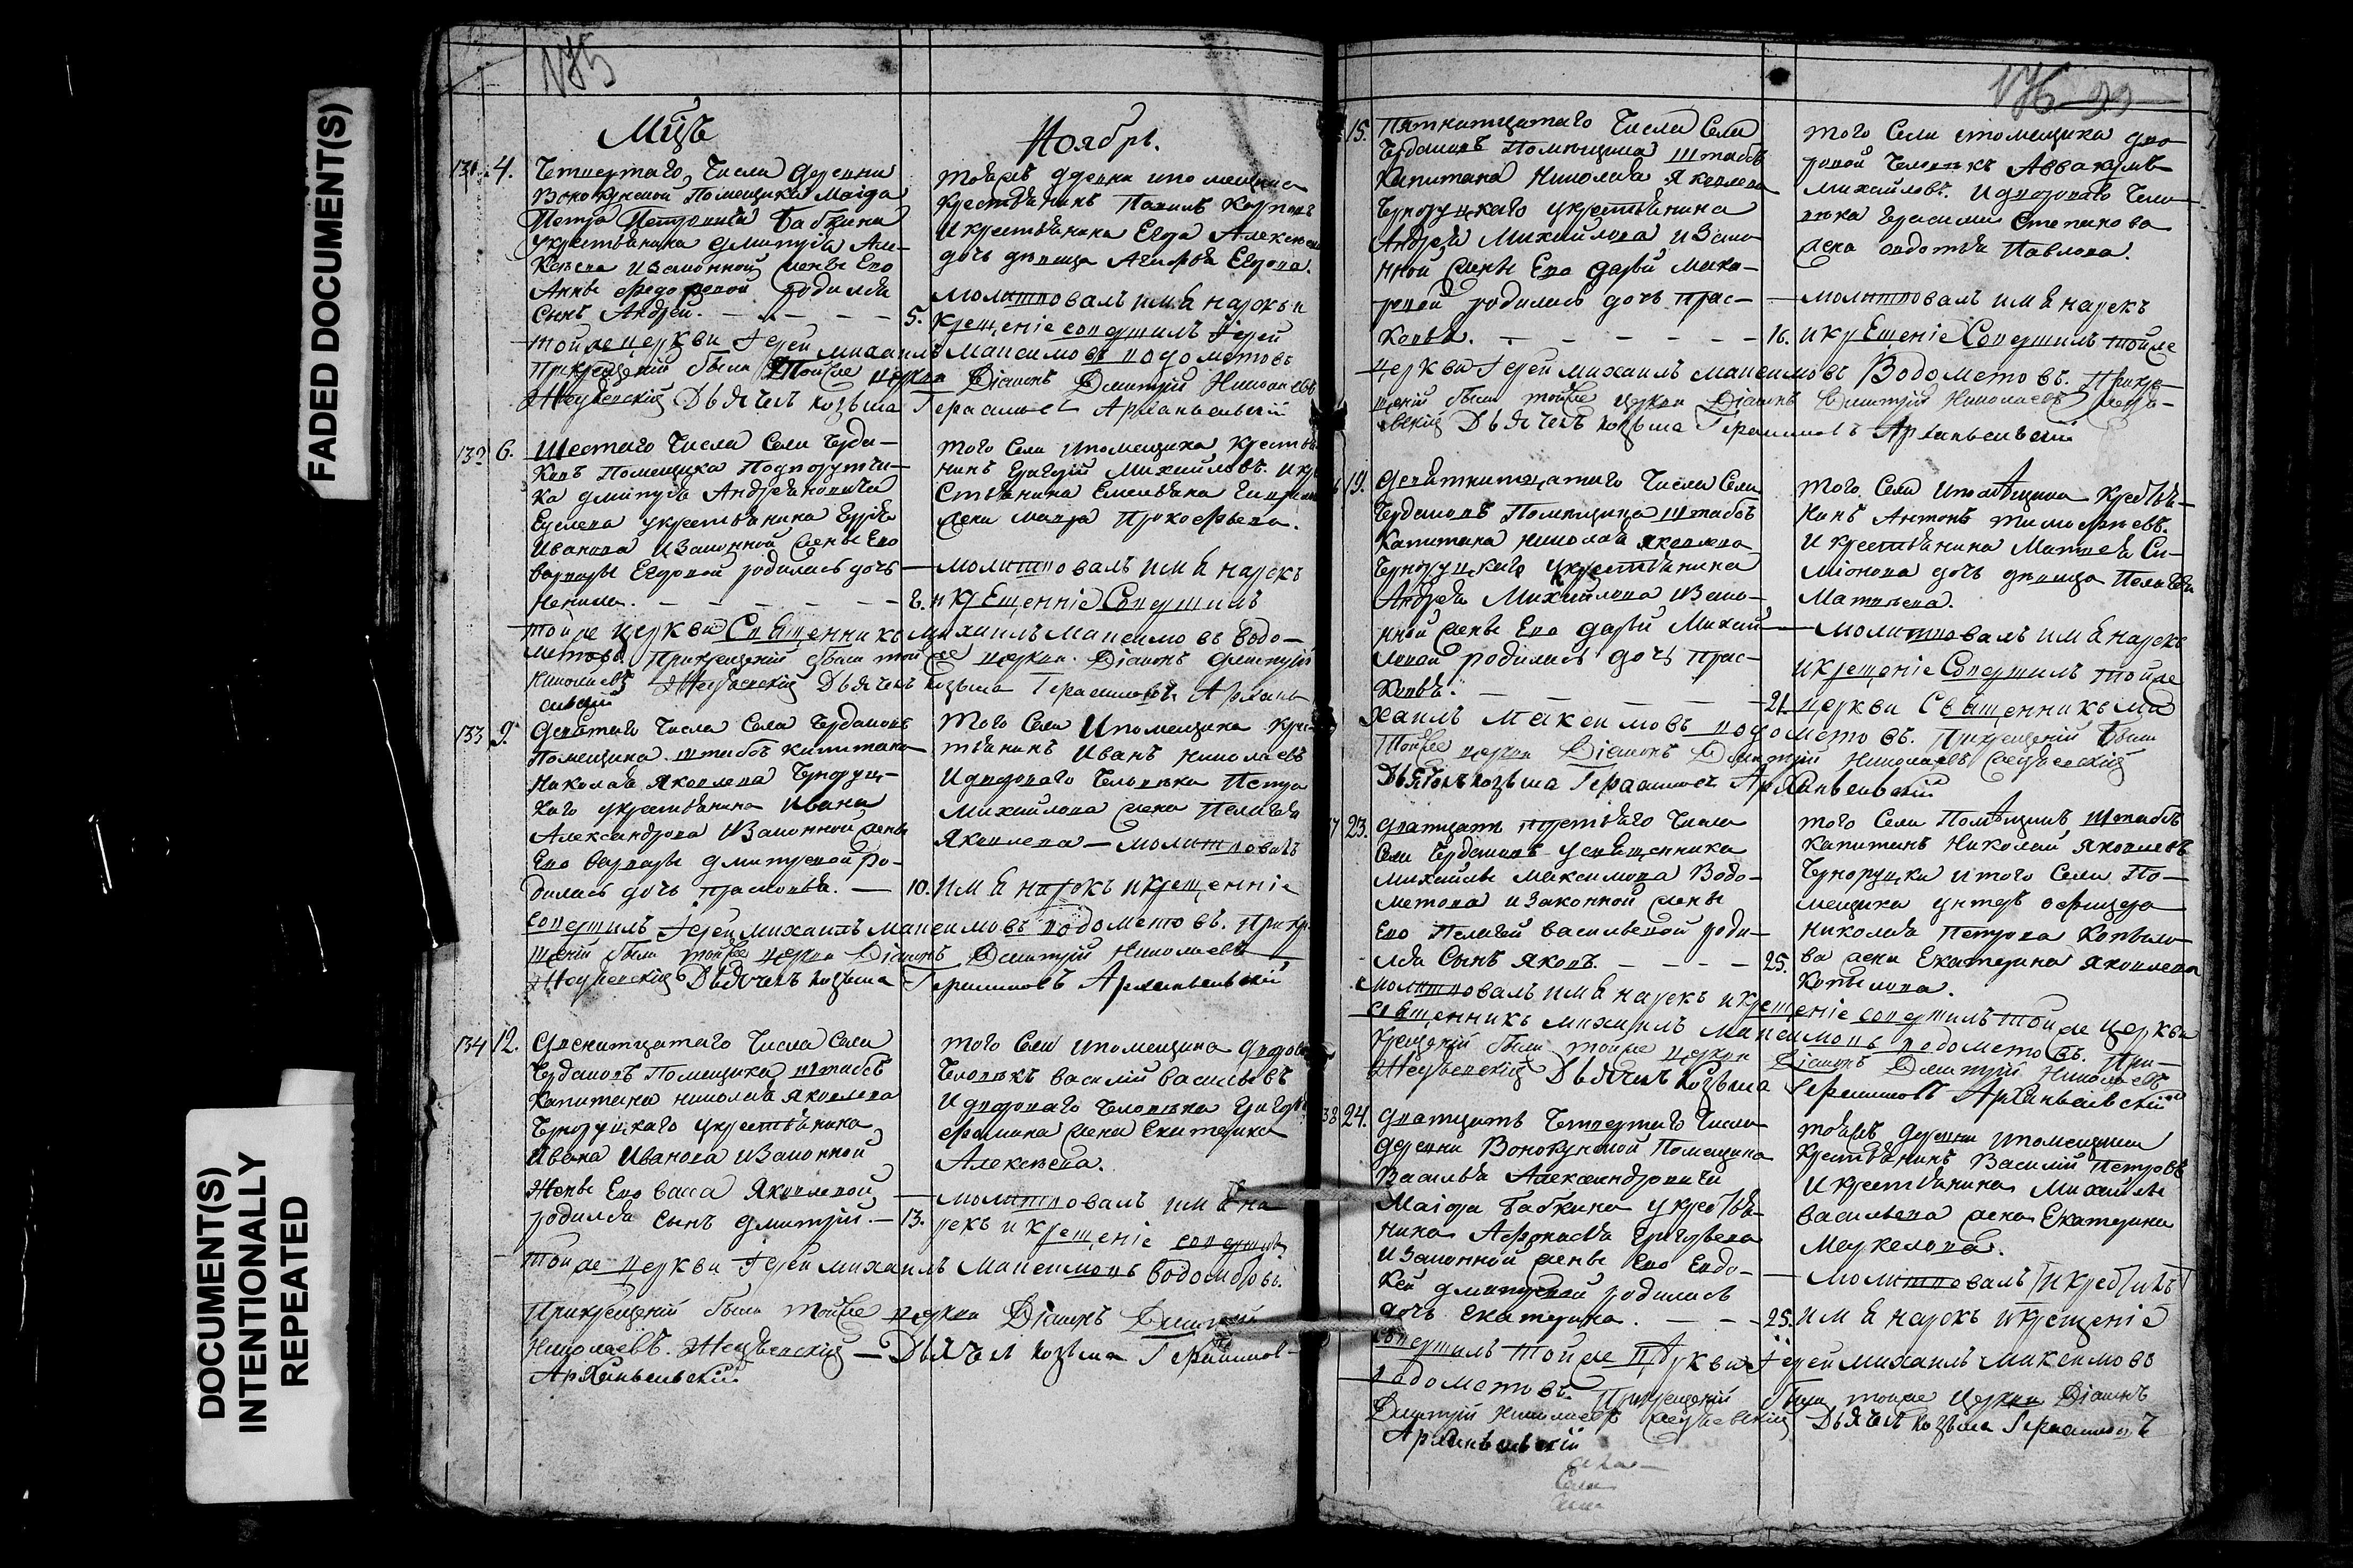 FADED DOCUMENT(S)
DOCUMENT(S)
INTENTIONALLY
REPEATED
175
Мцъ
Ноябрь.
131. 4. Четвертаго Числа деревни
Помещика Маіора
Петра Петровича Бабкина
укрестьянина Дмитрія Але-
Ксѣева изаконной жены Его
Анны Федоровой родился
Сынъ Андрей. — — — — 5.
тояжъ деревни ипомещика
крестьянинъ Павилъ
Икрестьянина Егора Алексѣева
дочь дѣвица Агафья Егорова.
молитвовалъ имя нарекъ и
крещеніе совершилъ Іерей
тойже церкви Іерей михаилъ Максимовъ водометовъ
Прикрещеніи были Тойже церкви Діаконъ Дмитрій Николаевъ
Дьячекъ козьма Герасимовъ Архангельскій
132 6. Шестаго Числа Села Черда-
Ковъ Помещика Подпоручи-
ка дмитрія Андреяновича
укрестьянина
Иванова изаконной жены Его
варвары Егоровой родилась дочь
Ненила. — — — — — 8.
того Села ипомещика крестья
нинъ Григорій Михайловъ. икре
стьянина Емельяна
жена Мавра Прокофьева.
— молитвовалъ имя нарекъ
и крЕщенніе Совершилъ
тойже Церкви Священникъ михаилъ Максимовъ Водо-
метовъ. Прикрещеніи были той же церкви Діаконъ дмитрій
Николаевъ Дьячекъ козьма Герасимовъ Архань
гельскій
133 9. девятаго Числа Села Чердаковъ
Помещика штабсъ капитана
Николая Яковлева Чернруц-
каго укрестьянина Ивана
Александрова изаконной жены
Его варвары дмитревой ро-
дилась дочь прасковья. — 10.
Того Села Ипомещика крес
тьянинъ Иванъ Николаевъ
Идвороваго Человѣка Петра
Михайлова жена Пелагея
Яковлева — молитвовалъ
имя нарекъ икрещенніе
совершилъ Іерей михаилъ максимовъ водометовъ. прикр
щеніи были тойже церкви Діаконъ Дмитрій Николаевъ
Дьячекъ козьма Герасимовъ Архангельскій
134 12. двенатцатаго Числа Села
Чердаковъ Помещика штабсъ
Капитана николая Яковлева
укрестьянина
Ивана Иванова изаконной
Жены Его васса Яковлевой
родился Сынъ дмитрій. — 13.
того Села ипомещика дворов
Человѣкъ василій васильевъ
Идвороваго Человѣка Григорья
фомина жена Екатерина
Алексѣева.
— молитвовалъ имя на
рекъ и крещеніе совершилъ
тойже церкви Іерей михаилъ Максимовъ Водометовъ.
Прикрещеніи были тойже церкви Діаконъ Дмитрій
Николаевъ. — Дьячекъ козьма Герасимовъ
Архангельскій
176 99
15. Пятнатцатаго Числа Села
Чердаковъ Помѣщика штабсъ
Капитана Николая Яковлева
укрестьянина
Андрея Михайлова изако-
нной жены Его дарьи мака-
ровой родилась дочь прас-
ковья. — — — — — 16.
того Села ипомещика дво
ровой Человѣкъ Аввакумъ
Михайловъ. Идвороваго Чело-
вѣка Герасима Степанова
жена овдотья Павлова.
— молитвовалъ имя нарекъ
икрЕщеніе Совершилъ тойже
Церкви Іерей михаилъ максимовъ Водометовъ. Прикре-
щеніи были тойже церкви Діаконъ Дмитрій Николаевъ
Дьячекъ козьма Герасимовъ Архангельскій
19. девятнатцатаго Числа Села
Чердаковъ Помѣщика штабсъ
Капитана николая яковлева
укрестьянина
Андрея Михайлова изако-
нной жены Его дарьи Михай-
ловой родилась дочь прас-
ковья. — — — — 21.
того Села ипомѣщика крестья-
нинъ Антонъ тимофѣевъ.
и крестьянина Матвея Си-
міонова дочь дѣвица Пелагея
Матвѣева.
— молитвовалъ имя нарекъ
икрещеніе Совершилъ тойже
церкви Священникъ ми
хаилъ максимовъ водометовъ. Прикрещеніи были
тойже церкви Діаконъ Дмитрій Николаевъ
Дьячекъ козьма Герасимовъ Архангельскій
23. дватцать третьяго Числа
Села Чердаковъ Усвященника
михайлы максимова Водо-
метова изаконной жены
Его Пелагеи васильевой роди-
лся Сынъ яковъ. — — — — 25.
того Села Помѣщикъ штабсъ
капитанъ Николай яковлевъ
итого Села По-
мещика унтеръ офицера
николая Петрова Копыло-
ва жена Екатерина яковлева
Копылова.
молитвовалъ имя нарекъ икрещеніе совершилъ тойже церкви
священникъ михаилъ максимовъ водометовъ. При-
крещеніи были тойже церкви Діаконъ Дмитрій Николаевъ
Дьячекъ козьма Герасимовъ Архангельскій
38 24. дватцать Четвертаго Числа
деревни Помещика
Василья Александровича
Маіора Бабкина укрестья-
нина Афонасья Григорьева
изаконной жены Его Евдо-
кеи дмитревой родилась
дочь екатерина. — — — 25.
тояжъ деревни ипомещика
Крестьянинъ Василій Петровъ
и крестьянина Михайлы
васильева жена Екатерина
Меркелова.
— молитвовалъ
имя нарекъ икрещеніе
совершилъ тойже Церкви Іерей михаилъ максимовъ
водометовъ. Прикрещеніи были тойже Церкви Діаконъ
Дмитрій Николаевъ Дьячекъ козьма Герасимовъ
Архангельскій